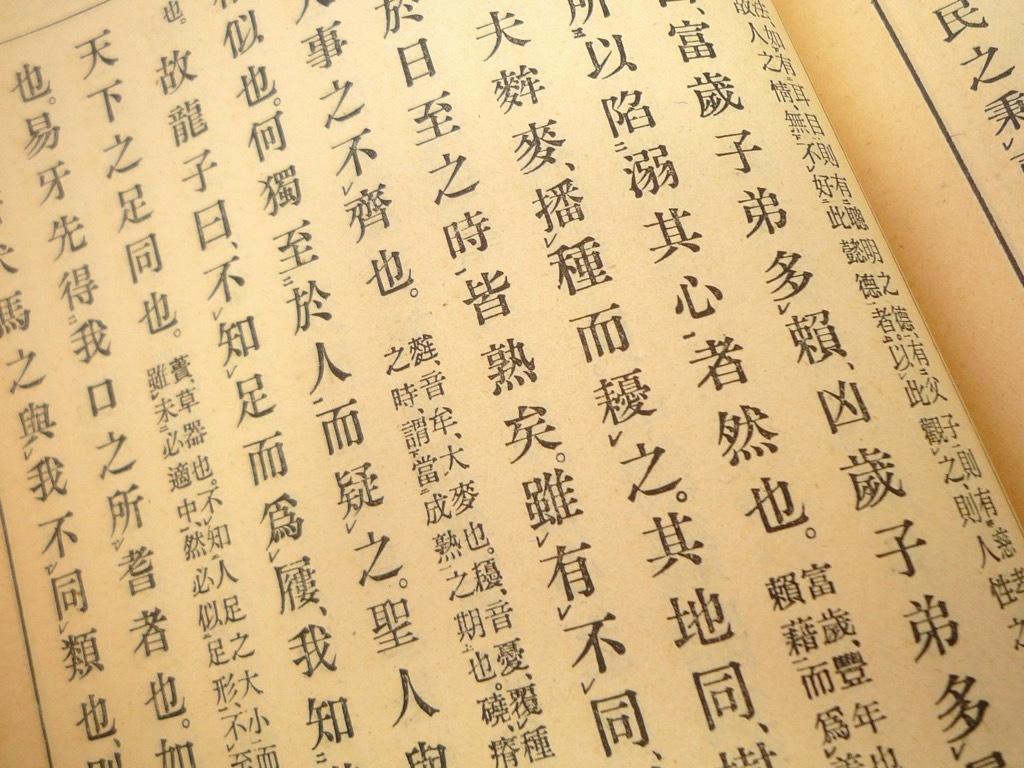 民之秉
性、如有耳目、則有聰明之德、有父子、則有慈孝之
故人之情、無不好此懿德者、以此觀之、則人性
富歲子弟多賴、凶歲子弟多
所以陷溺其心者然也。
富歲、豐年也
賴、藉而爲善
夫麰麥、播種而耰之。其地同、樹
於日至之時皆熟矣。雖有不同、
人事之不齊也。
麰、音牟、大麥也。耰、音憂、覆種
之時、謂當成熟之期也。磽、瘠
相似也。何獨至於人而疑之。聖人與
也。故龍子曰、不知足而爲屨、我知
天下之足同也。
蕢、草器也。不知人足之大小而
雖未必適中、然必似足形、不至
也。易牙先得我口之所耆者也。如
犬馬之與我不同類也、則